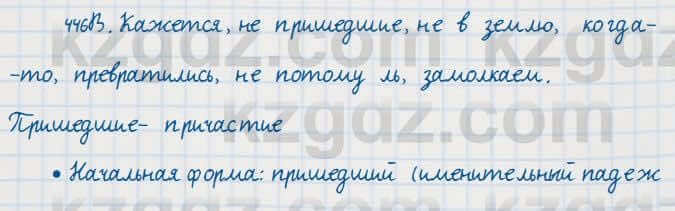 446В. Кажется, не пришедшие, не в землю, когда-
-то, превратились, не потому ль, замолкаем.
Пришедшие- причастие
• Начальная форма: пришедший (именительный падеж
kzgdz.com